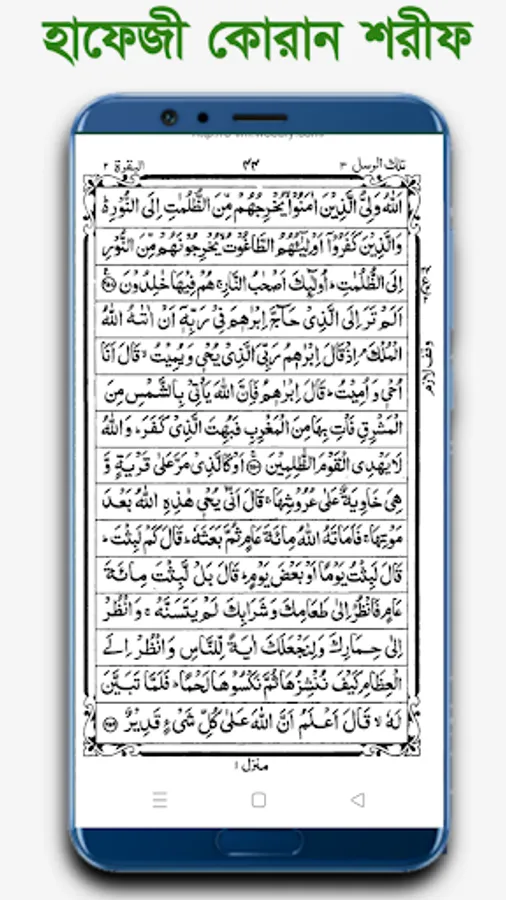 হাফেজী কোরান শরীফ
البقرة ٢
٤٤
تلك الرسل ٣
اَللّٰهُ وَلِيُّ الَّذِيْنَ اٰمَنُوْا يُخْرِجُهُمْ مِّنَ الظُّلُمٰتِ اِلَى النُّوْرِ ؕ
وَالَّذِيْنَ كَفَرُوْۤا اَوْلِيٰٓـُٔهُمُ الطَّاغُوْتُ يُخْرِجُوْنَهُمْ مِّنَ النُّوْرِ
اِلَى الظُّلُمٰتِ ؕ اُولٰٓئِكَ اَصْحٰبُ النَّارِ ۚ هُمْ فِيْهَا خٰلِدُوْنَ ﴿٢٥٧﴾
اَلَمْ تَرَ اِلَى الَّذِيْ حَآجَّ اِبْرٰهٖمَ فِيْ رَبِّهٖۤ اَنْ اٰتٰىهُ اللّٰهُ
الْمُلْكَ ۘ اِذْ قَالَ اِبْرٰهٖمُ رَبِّيَ الَّذِيْ يُحْيٖ وَيُمِيْتُ ۙ قَالَ اَنَا
اُحْيٖ وَاُمِيْتُ ؕ قَالَ اِبْرٰهٖمُ فَاِنَّ اللّٰهَ يَاْتِيْ بِالشَّمْسِ مِنَ
الْمَشْرِقِ فَاْتِ بِهَا مِنَ الْمَغْرِبِ فَبُهِتَ الَّذِيْ كَفَرَ ؕ وَاللّٰهُ
لَا يَهْدِى الْقَوْمَ الظّٰلِمِيْنَ ﴿٢٥٨﴾ اَوْ كَالَّذِيْ مَرَّ عَلٰى قَرْيَةٍ وَّ
هِيَ خَاوِيَةٌ عَلٰى عُرُوْشِهَا ۚ قَالَ اَنّٰى يُحْيٖ هٰذِهِ اللّٰهُ بَعْدَ
مَوْتِهَا ۚ فَاَمَاتَهُ اللّٰهُ مِائَةَ عَامٍ ثُمَّ بَعَثَهٗ ؕ قَالَ كَمْ لَبِثْتَ ؕ
قَالَ لَبِثْتُ يَوْمًا اَوْ بَعْضَ يَوْمٍ ؕ قَالَ بَلْ لَّبِثْتَ مِائَةَ
عَامٍ فَانْظُرْ اِلٰى طَعَامِكَ وَشَرَابِكَ لَمْ يَتَسَنَّهْ ۚ وَانْظُرْ
اِلٰى حِمَارِكَ وَلِنَجْعَلَكَ اٰيَةً لِّلنَّاسِ وَانْظُرْ اِلَى
الْعِظَامِ كَيْفَ نُنْشِزُهَا ثُمَّ نَكْسُوْهَا لَحْمًا ؕ فَلَمَّا تَبَيَّنَ
لَهٗ ۙ قَالَ اَعْلَمُ اَنَّ اللّٰهَ عَلٰى كُلِّ شَيْءٍ قَدِيْرٌ ﴿٢٥٩﴾
وقف لازم
منزل ١